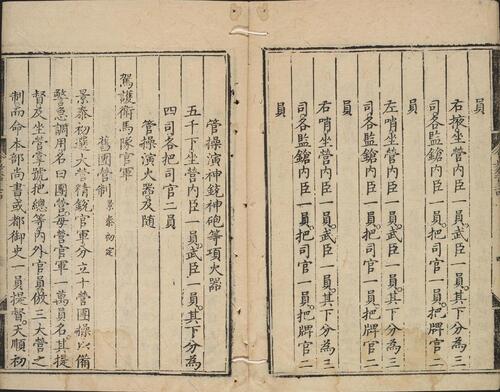 員
右掖坐營内臣一員武臣一員其下分為三
司各監鎗内臣一員把司官一員把牌官二
員
左哨坐營内臣一員武臣一員其下分為三
司各監鎗内臣一員把司官一員把牌官二
員
右哨坐營内臣一員武臣一員其下分為三
司各監鎗内臣一員把司官一員把牌官二
員
管操演神銃神砲等項火器
五千下坐營内臣一員武臣一員其下分為
四司各把司官二員
管操演火器及隨
駕護衛馬隊官軍
舊團營制景泰初定
景泰初選三大營精銳官軍分立十營團操以備
警急調用名曰團營每營官軍一萬員名其提
督及坐營掌號把總等内外官員倣三大營之
制而命本部尚書或都御史一員提督天順初